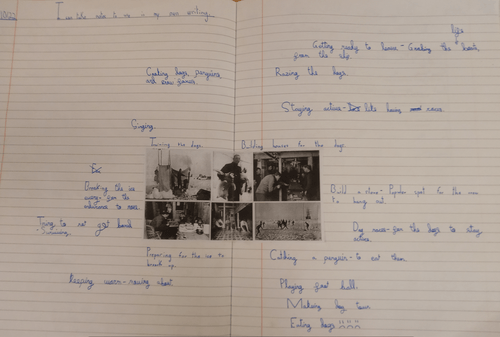 I can take notes in my own writing.
life
Getting ready to leave - Grabing the boats
from the ship
Cooking dogs, penguins,
and new games.
Racing the dogs.
Staying active - like having races.
Singing.
Training the dogs.
Building houses for the dogs.
Breaking the ice
away - for the
endurance to move.
Build a stove - Popular spot for the men
to hang out
Trying to not get bored
Dog races - for the dogs to stay
active.
Preparing for the ice to
break up.
Catching a penguin - to eat them.
Keeping warm - moving about
Playing foot ball.
Making dog town
Eating dogs